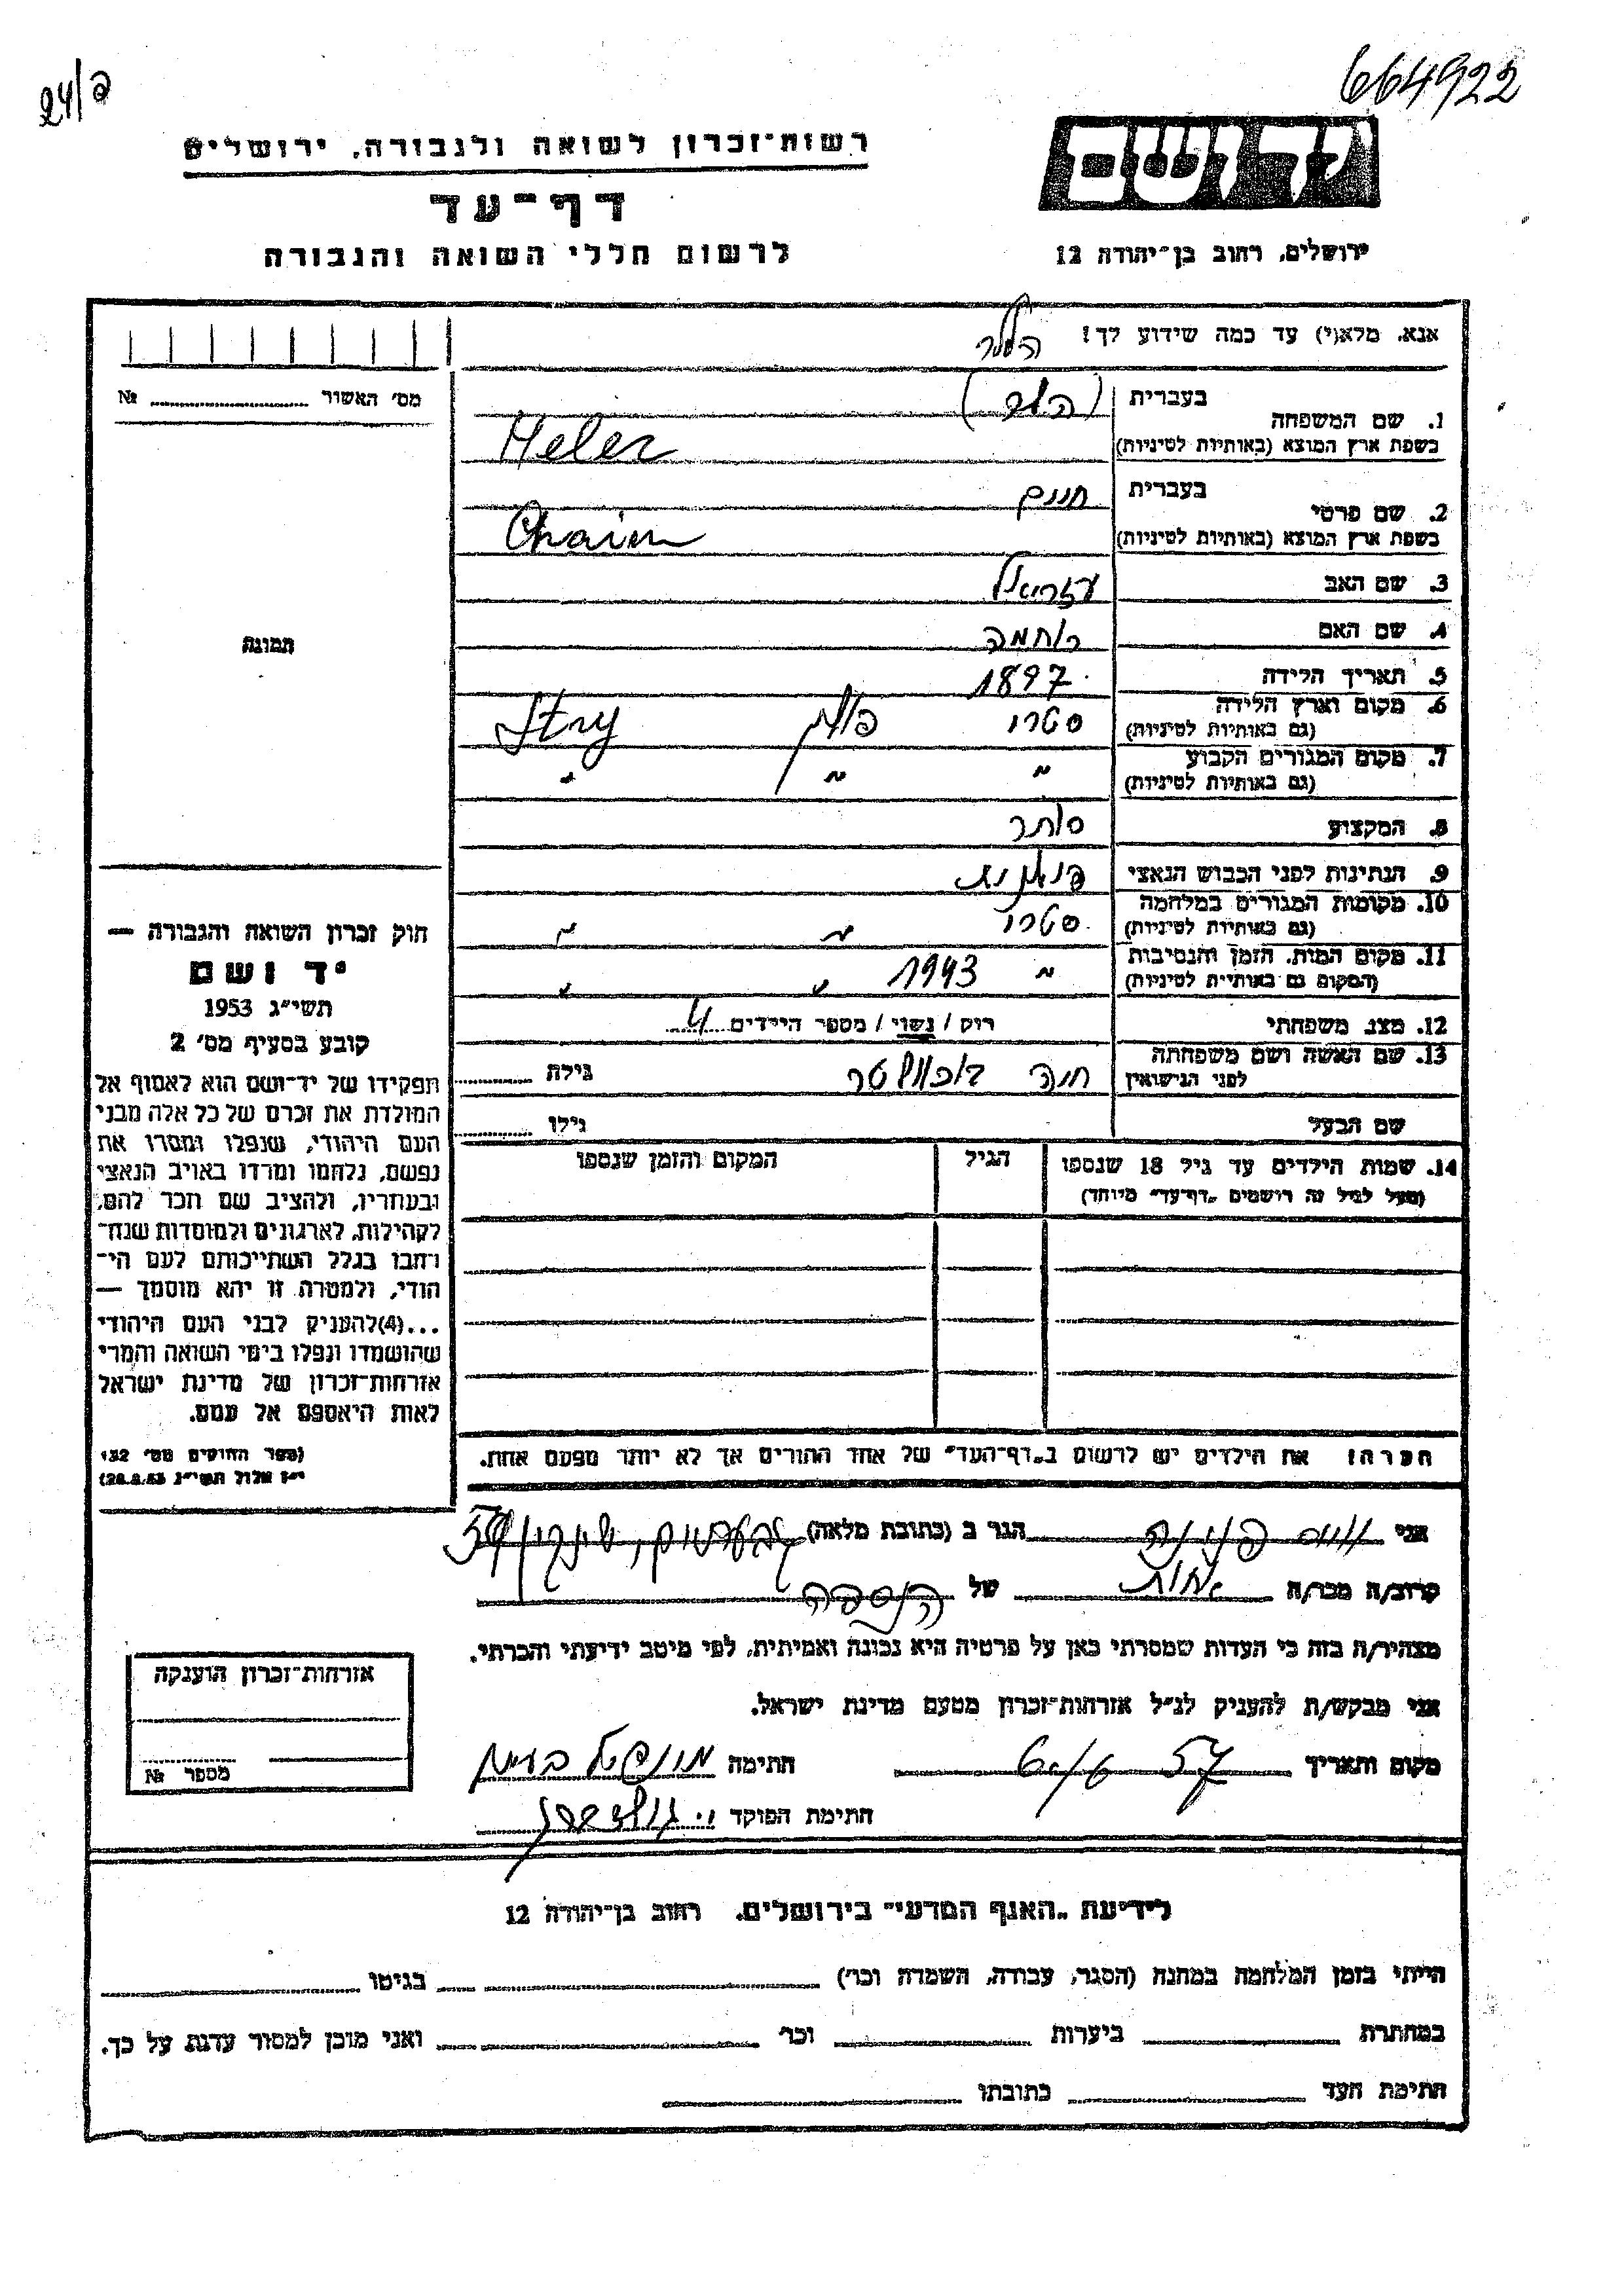 664922
ה/24
יד ושם
ירושלים, רחוב בן־יהודה 12
רשות־זכרון לשואה ולגבורה, ירושלים
דף־עד
לרשום חללי השואה והגבורה
אנא, מלא(י) עד כמה שידוע לך!
הלר
מס' האשור № 
1. שם המשפחה בעברית
בשפת ארץ המוצא (באותיות לטיניות) Heler
2. שם פרטי בעברית חיים
בשפת ארץ המוצא (באותיות לטיניות) Chaim
3. שם האב עזריאל
4. שם האם נחמה
5. תאריך הלידה 1897
6. מקום וארץ הלידה (גם באותיות לטיניות) סטרי פולין Stry
7. מקום המגורים הקבוע (גם באותיות לטיניות) " " "
8. המקצוע סוחר
9. הנתינות לפני הכבוש הנאצי פולנית
10. מקומות המגורים במלחמה (גם באותיות לטיניות) סטרי " "
11. מקום המות, הזמן והנסיבות (המקום גם באותיות לטיניות) " 1943 " "
12. מצב משפחתי רוק / נשוי / מספר הילדים 4
13. שם האשה ושם משפחתה לפני הנישואין חנה גילה
שם הבעל גילו
14. שמות הילדים עד גיל 18 שנספו הגיל המקום והזמן שנספו
(מעל לגיל זה רושמים „דף־עד" מיוחד)
הערה! את הילדים יש לרשום ב„דף־העד" של אחד ההורים אך לא יותר מפעם אחת.
תמונה
חוק זכרון השואה והגבורה —
יד ושם
תשי"ג 1953
קובע בסעיף מס' 2
תפקידו של יד־ושם הוא לאסוף אל
המולדת את זכרם של כל אלה מבני
העם היהודי, שנפלו ומסרו את
נפשם, נלחמו ומרדו באויב הנאצי
ובעוזריו, ולהציב שם וזכר להם,
לקהילות, לארגונים ולמוסדות שנח־
רבו בגלל השתייכותם לעם הי־
הודי, ולמטרה זו יהא מוסמך —
...(4)להעניק לבני העם היהודי
שהושמדו ונפלו בימי השואה והמרי
אזרחות־זכרון של מדינת ישראל
לאות היאספם אל עמם.
(ספר החוקים מס' 132
י"ז אלול תשי"ג 28.8.53)
אני הגר ב (כתובת מלאה)
קרוב/ה מכר/ה אחות של הנספה
מצהיר/ה בזה כי העדות שמסרתי כאן על פרטיה היא נכונה ואמיתית, לפי מיטב ידיעתי והכרתי.
אני מבקש/ת להעניק לנ"ל אזרחות־זכרון מטעם מדינת ישראל.
מקום ותאריך 57 חתימה
חתימת הפוקד
אזרחות־זכרון הוענקה
מספר №
לידיעת „האגף המדעי" בירושלים, רחוב בן־יהודה 12
הייתי בזמן המלחמה במחנה (הסגר, עבודה, השמדה וכו') בגיטו
במחתרת ביערות וכו' ואני מוכן למסור עדות על כך.
חתימת העד כתובתו